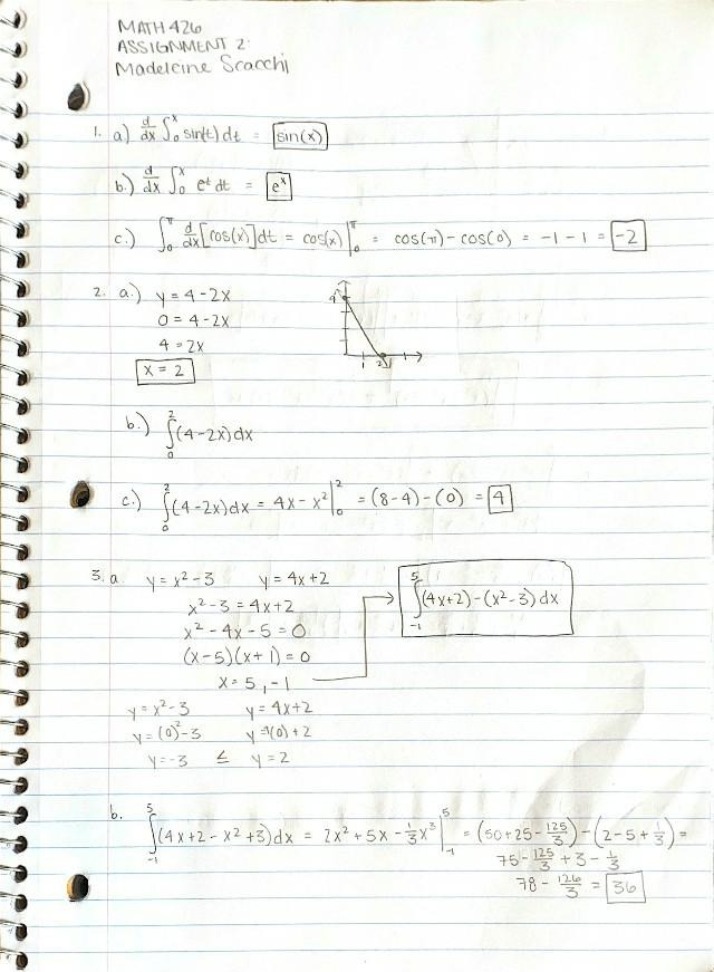 MATH 426
ASSIGNMENT 2:
Madeleine Scacchi
1. a.) d/dx ∫₀ˣ sin(t) dt = sin(x)
b.) d/dx ∫₀ˣ eᵗ dt = eˣ
c.) ∫₀^π d/dx [cos(x)] dt = cos(x) |₀^π = cos(π) - cos(0) = -1 - 1 = -2
2. a.) y = 4 - 2x
0 = 4 - 2x
4 = 2x
x = 2
4
1 2
b.) ∫₀² (4-2x) dx
c.) ∫₀² (4-2x) dx = 4x - x² |₀² = (8-4) - (0) = 4
3. a y = x² - 3 y = 4x + 2
x² - 3 = 4x + 2
x² - 4x - 5 = 0
(x-5)(x+1) = 0
x = 5, -1
∫₋₁⁵ (4x+2) - (x²-3) dx
y = x² - 3 y = 4x + 2
y = (0)² - 3 y = 4(0) + 2
y = -3 ≤ y = 2
b. ∫₋₁⁵ (4x + 2 - x² + 3) dx = 2x² + 5x - 1/3 x³ |₋₁⁵ = (50 + 25 - 125/3) - (2 - 5 + 1/3) =
75 - 125/3 + 3 - 1/3
78 - 126/3 = 36